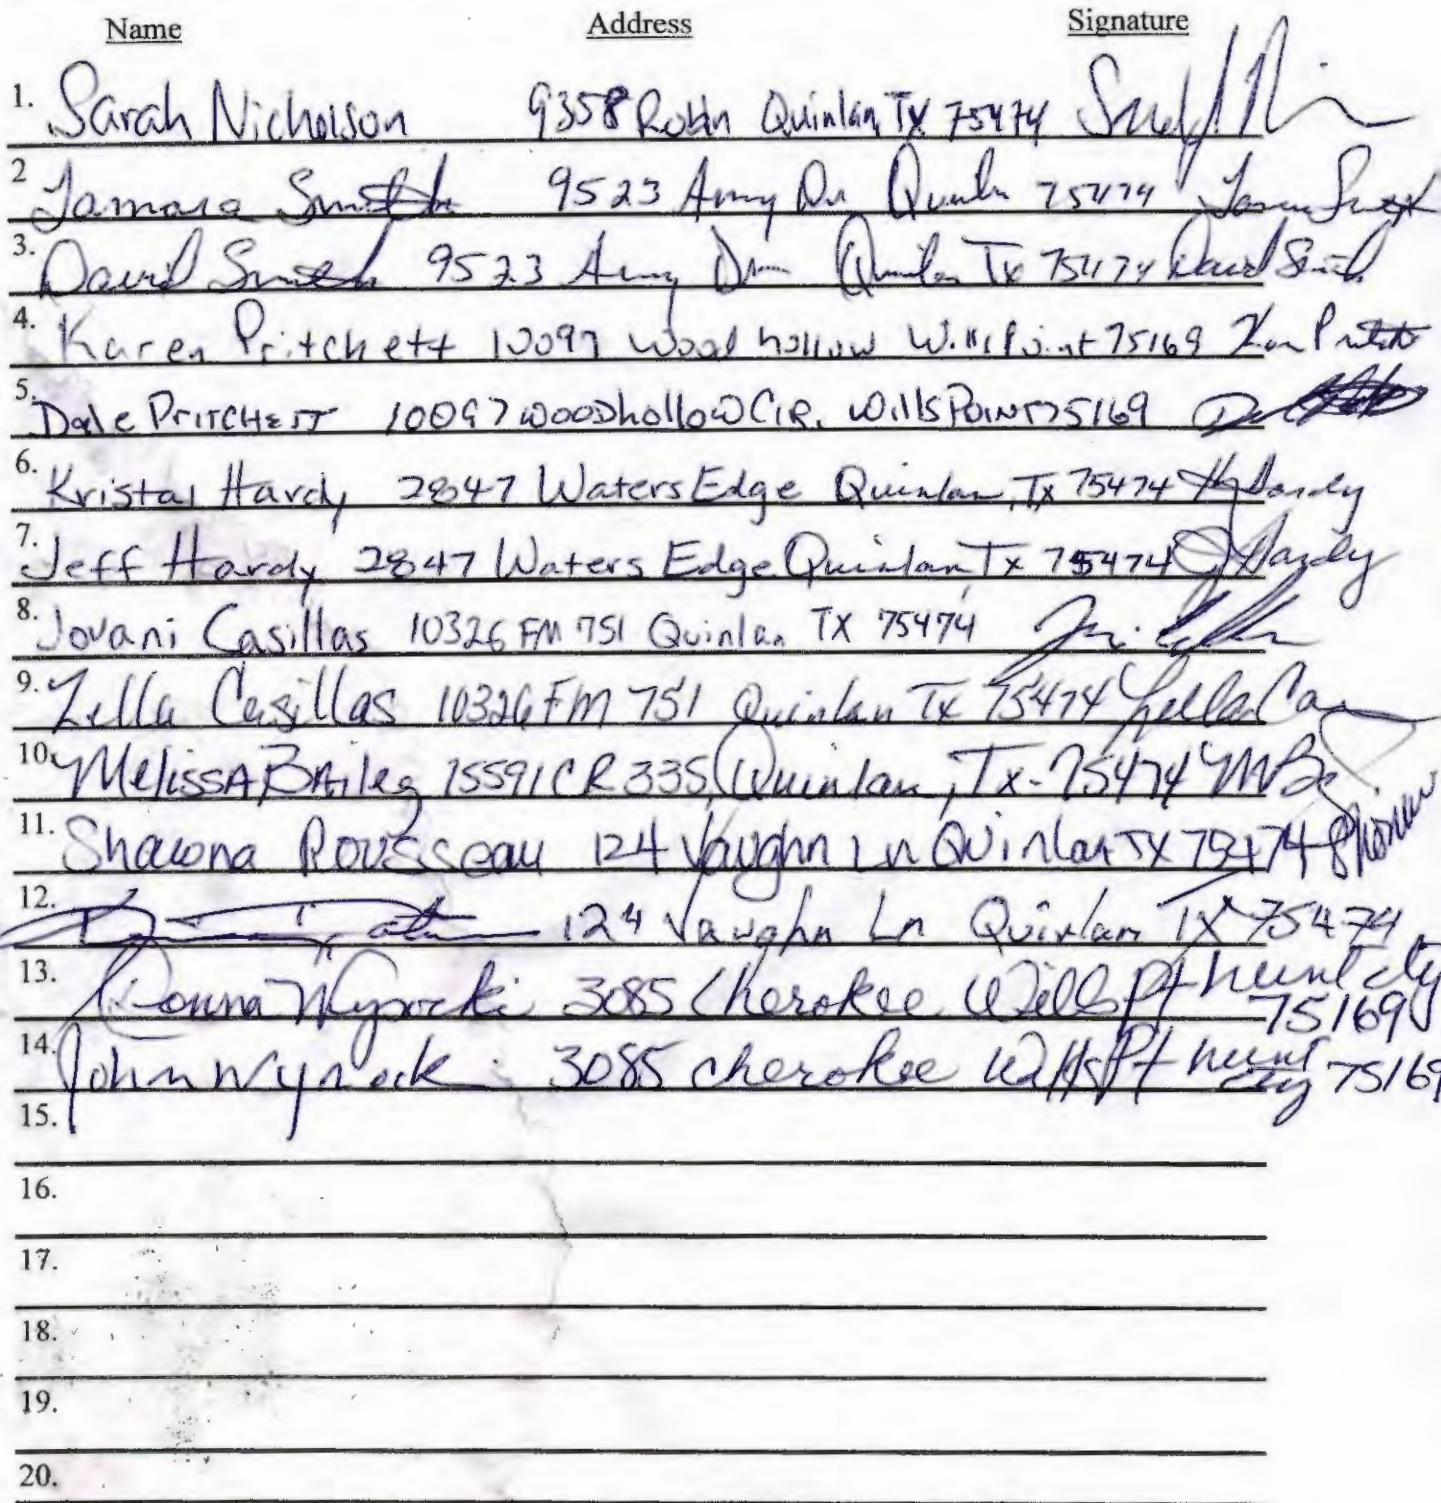 Name Address Signature
1. Sarah Nicholson 9358 Robin Quinlan, TX 75474
2 Tamara Smith 9523 Army Dr Quinlan 75474 Tamara Smith
3. David Smith 9523 Army Dr Quinlan Tx 75474 David Smith
4. Karen Pritchett 10097 Wood hollow Wills Point 75169
5. Dale PRITCHETT 10097 WOODhollow CIR. Wills POINT 75169
6. Kristal Hardy 2847 Waters Edge Quinlan, Tx 75474 Hardy
7. Jeff Hardy 2847 Waters Edge Quinlan Tx 75474 J Hardy
8. Jovani Casillas 10326 FM 751 Quinlan TX 75474
9. Zella Casillas 10326 FM 751 Quinlan Tx 75474 Zella Cas
10. MelissA BAiley 15591 CR 335, Quinlan, Tx - 75474 MB
11. Shawna Rousseau 124 Vaughn Ln Quinlan TX 75474
12. 124 Vaughn Ln Quinlan TX 75474
13. Donna Wysocki 3085 Cherokee Wills Pt hunt cty 75169
14. John Wysocki 3085 cherokee Wills Pt hunt cty 75169
15.
16.
17.
18.
19.
20.